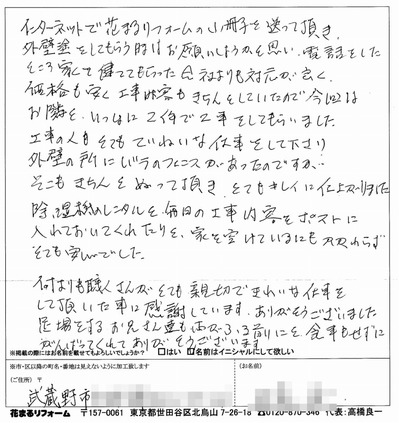 インターネットで花まるリフォームの小冊子を送って頂き、
外壁塗をしてもらう時はお願いしようかと思い、電話をした
ところ家を建ててもらった会社よりも対応が良く、
価格も安く工事内容もきちんとしていたので今回は
お隣と、いっしょに2件で工事をしてもらいました
工事の人もとてもていねいな仕事をして下さり
外壁の所にフェンスがあったのですが…
そこもきちんとぬって頂き、とてもキレイに仕上がりました
除湿機のレンタルを、毎日の工事内容をポストに
入れておいてくれたりと、家を空けているにもかかわらず
とても安心でした。
何よりも職人さんがとても親切できれいな仕事を
して頂いた事に感謝しています。ありがとうございました
足場をするお兄さん達も雨がふる前にと、食事もせずに
がんばってくれてありがとうございます
※掲載の際にはお名前を載せてもよろしいでしょうか? □はい ☑名前はイニシャルにして欲しい
※市・区以降の町名・番地は見えないように加工致します
(ご住所) 〒
(お名前)
武蔵野市
花まるリフォーム 〒157-0061 東京都世田谷区北烏山7-26-18 ☎0120-870-346 代表:高橋良一